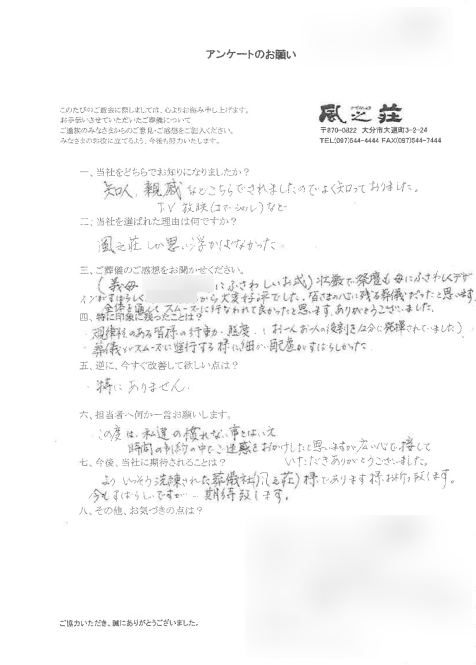 アンケートのお願い
このたびのご逝去に際しましては、心よりお悔み申し上げます。
お手伝いさせていただいたご葬儀について
ご遺族のみなさまからのご意見・ご感想をご記入ください。
みなさまのお役に立てるよう、今後も努力いたします。
風之荘
〒870-0822 大分市大道町3-2-24
TEL(097)544-4444 FAX(097)544-7444
一、当社をどちらでお知りになりましたか?
知人、親戚などこちらでされましたのでよく知っておりました。
T.V 放映(コマーシャル)など
二、当社を選ばれた理由は何ですか?
風之荘しか思い浮かばなかった。
三、ご葬儀のご感想をお聞かせください。
(義母 にふさわしいお式)状厳で祭壇も母にふさわしくデザ
インがすばらしく から大変好評でした。皆さまの心に残る葬儀だったと思います。
全体を通してスムーズに行なわれて良かったと思います。ありがとうございました。
四、特に印象に残ったことは?
・規律性のある皆様の行動力・態度。(お一人お一人の役割を充分に発揮されていました)
・葬儀がスムーズに進行する様に細か配慮がすばらしかった。
五、逆に、今すぐ改善して欲しい点は?
・特にありません
六、担当者へ何か一言お願いします。
・この度は、私達の慣れない事とはいえ
時間の制約の中でご迷惑をおかけしたと思いますが広い心で接して
いただきありがとうございました。
七、今後、当社に期待されることは?
よりいっそう洗練された葬儀社(風之荘)様であります様お祈り致します。
今もすばらしいですが 期待致します。
八、その他、お気づきの点は?
ご協力いただき、誠にありがとうございました。